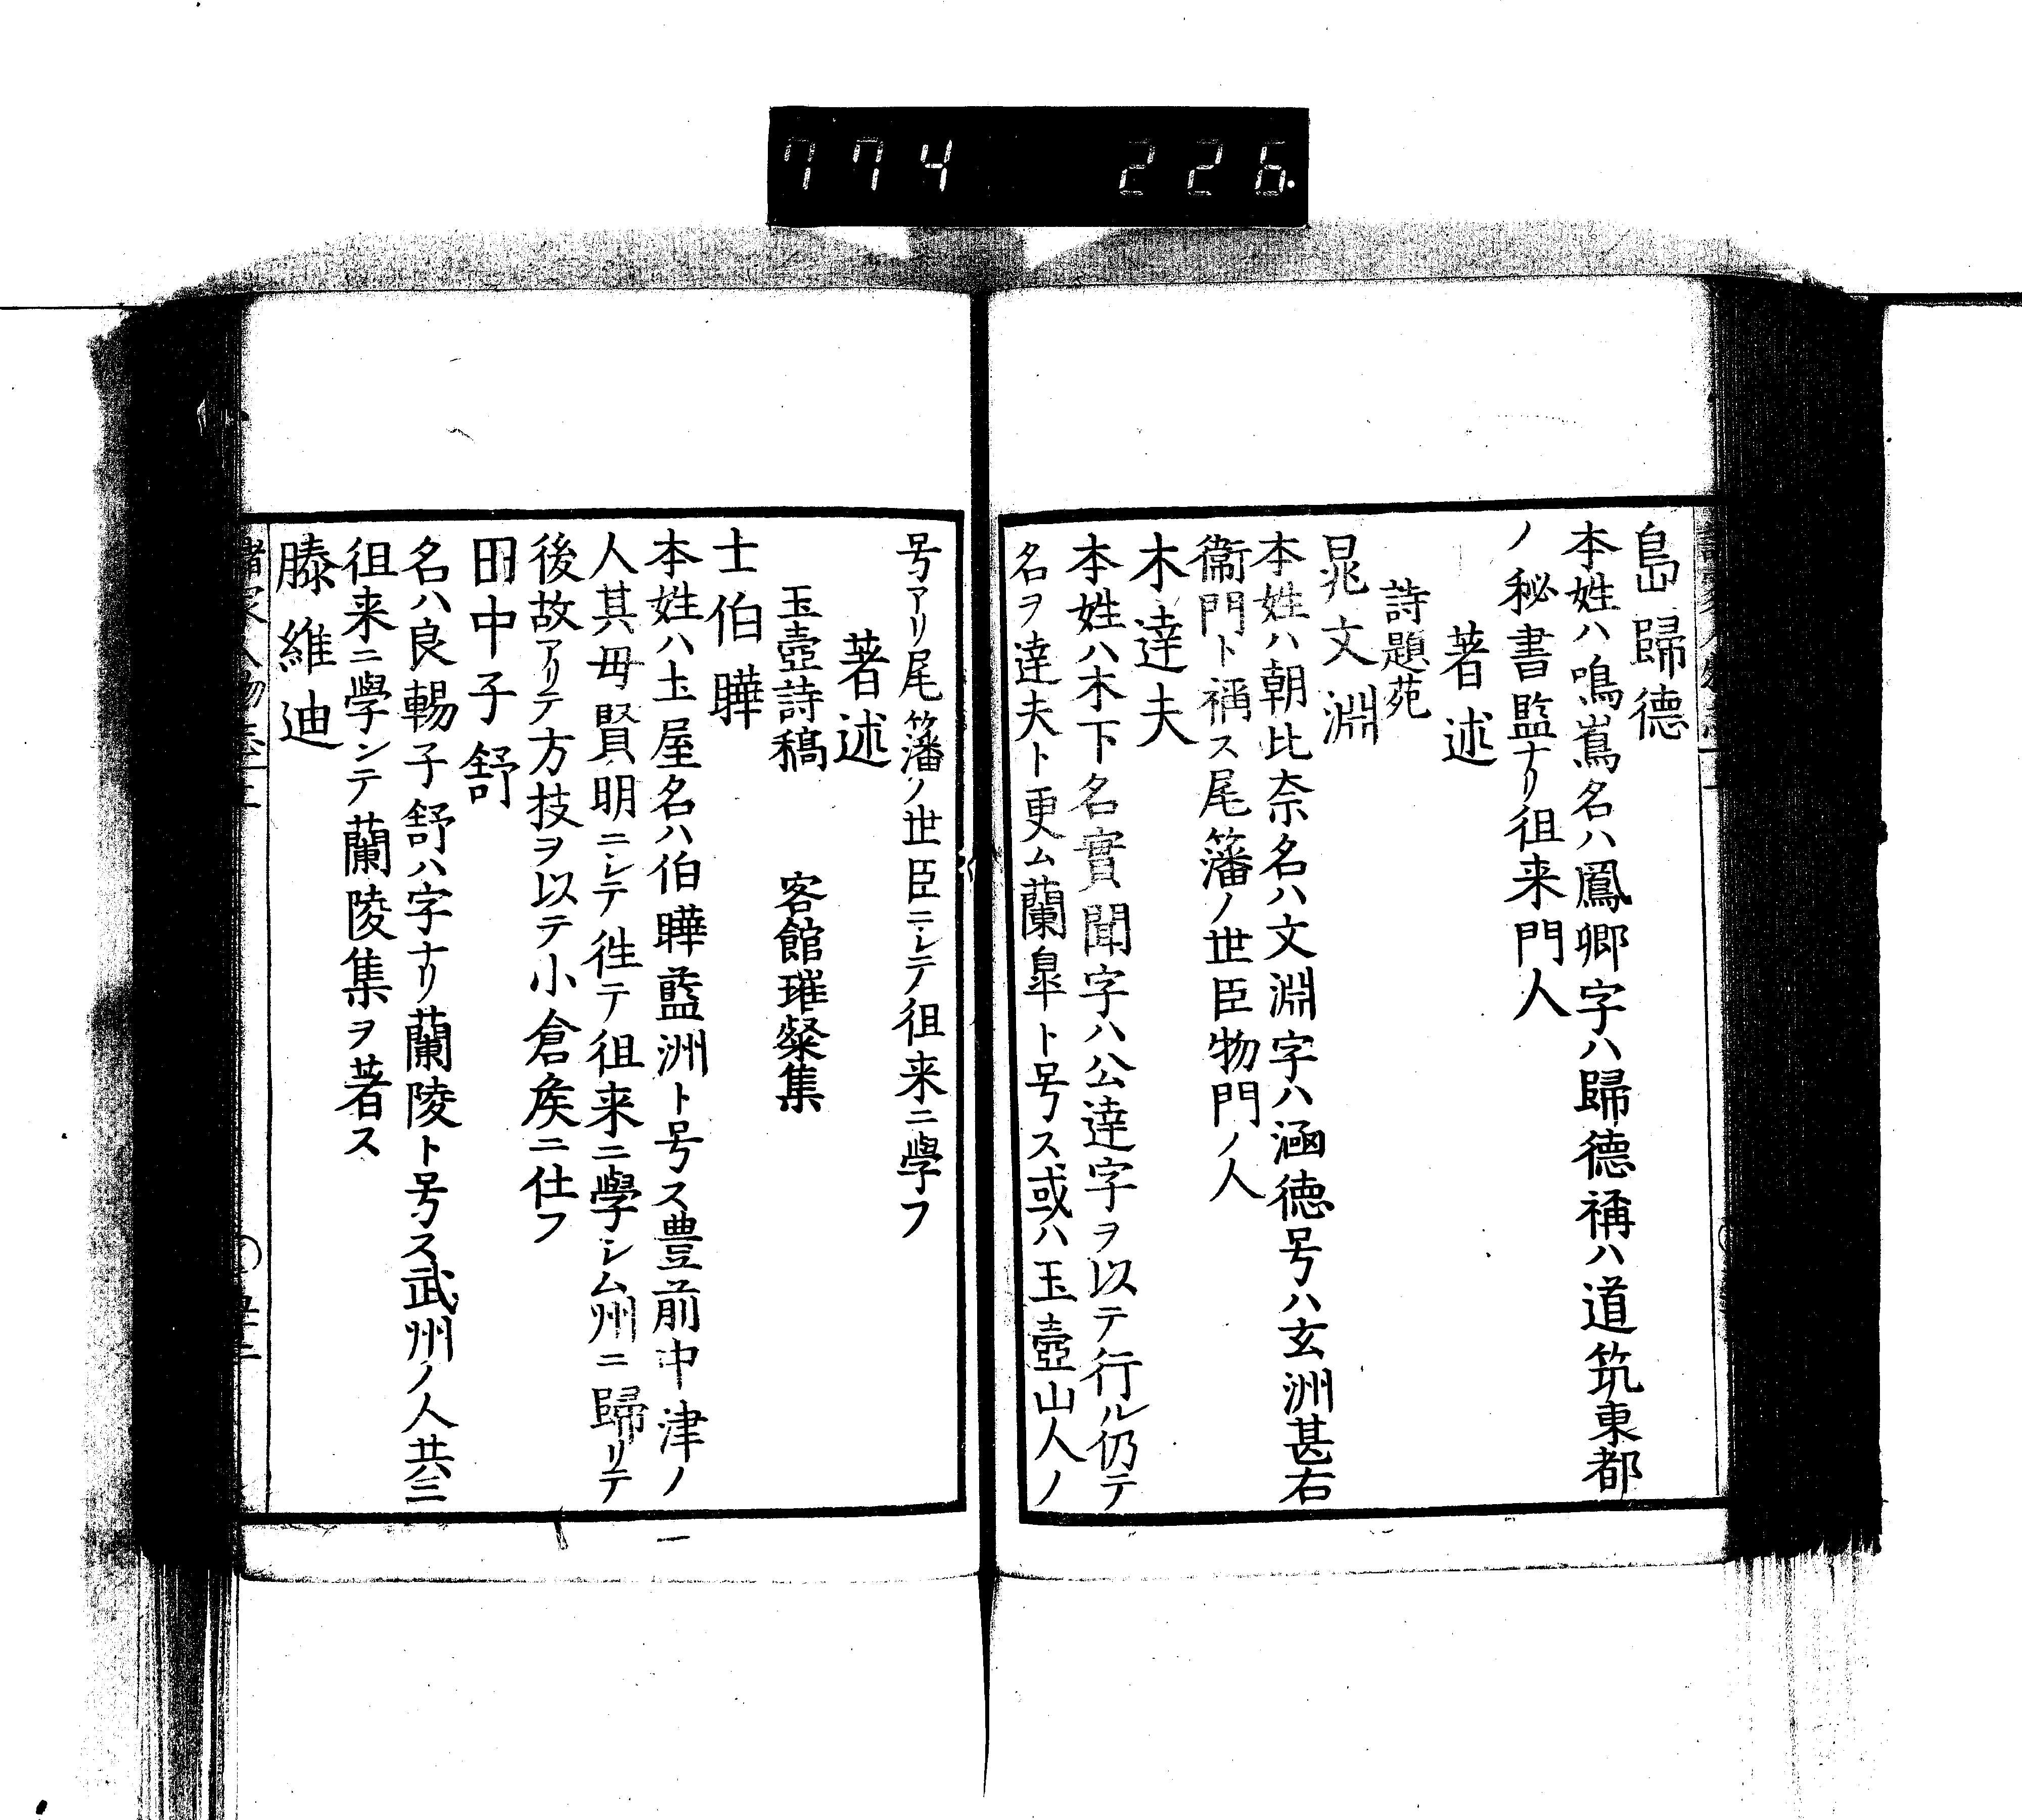 774 226.
島歸德
本姓ハ鳴嶌名ハ鳳卿字ハ歸德稱ハ道筑東都
ノ秘書監ナリ徂来門人
著述
詩題苑
晁文淵
本姓ハ朝比奈名ハ文淵字ハ涵德号ハ玄洲甚右
衞門ト稱ス尾藩ノ世臣物門ノ人
木達夫
本姓ハ木下名實聞字ハ公達字ヲ以テ行ル仍テ
名ヲ達夫ト更ム蘭皐ト号ス或ハ玉壺山人ノ
号アリ尾藩ノ世臣ニシテ徂来ニ學フ
著述
玉壺詩稿 客館璀粲集
士伯曄
本姓ハ土屋名ハ伯曄藍洲ト号ス豊前中津ノ
人其母賢明ニシテ徃テ徂来ニ學シム州ニ歸リテ
後故アリテ方技ヲ以テ小倉矦ニ仕フ
田中子舒
名ハ良暢子舒ハ字ナリ蘭陵ト号ス武州ノ人共ニ
徂来ニ學ンテ蘭陵集ヲ著ス
滕維迪